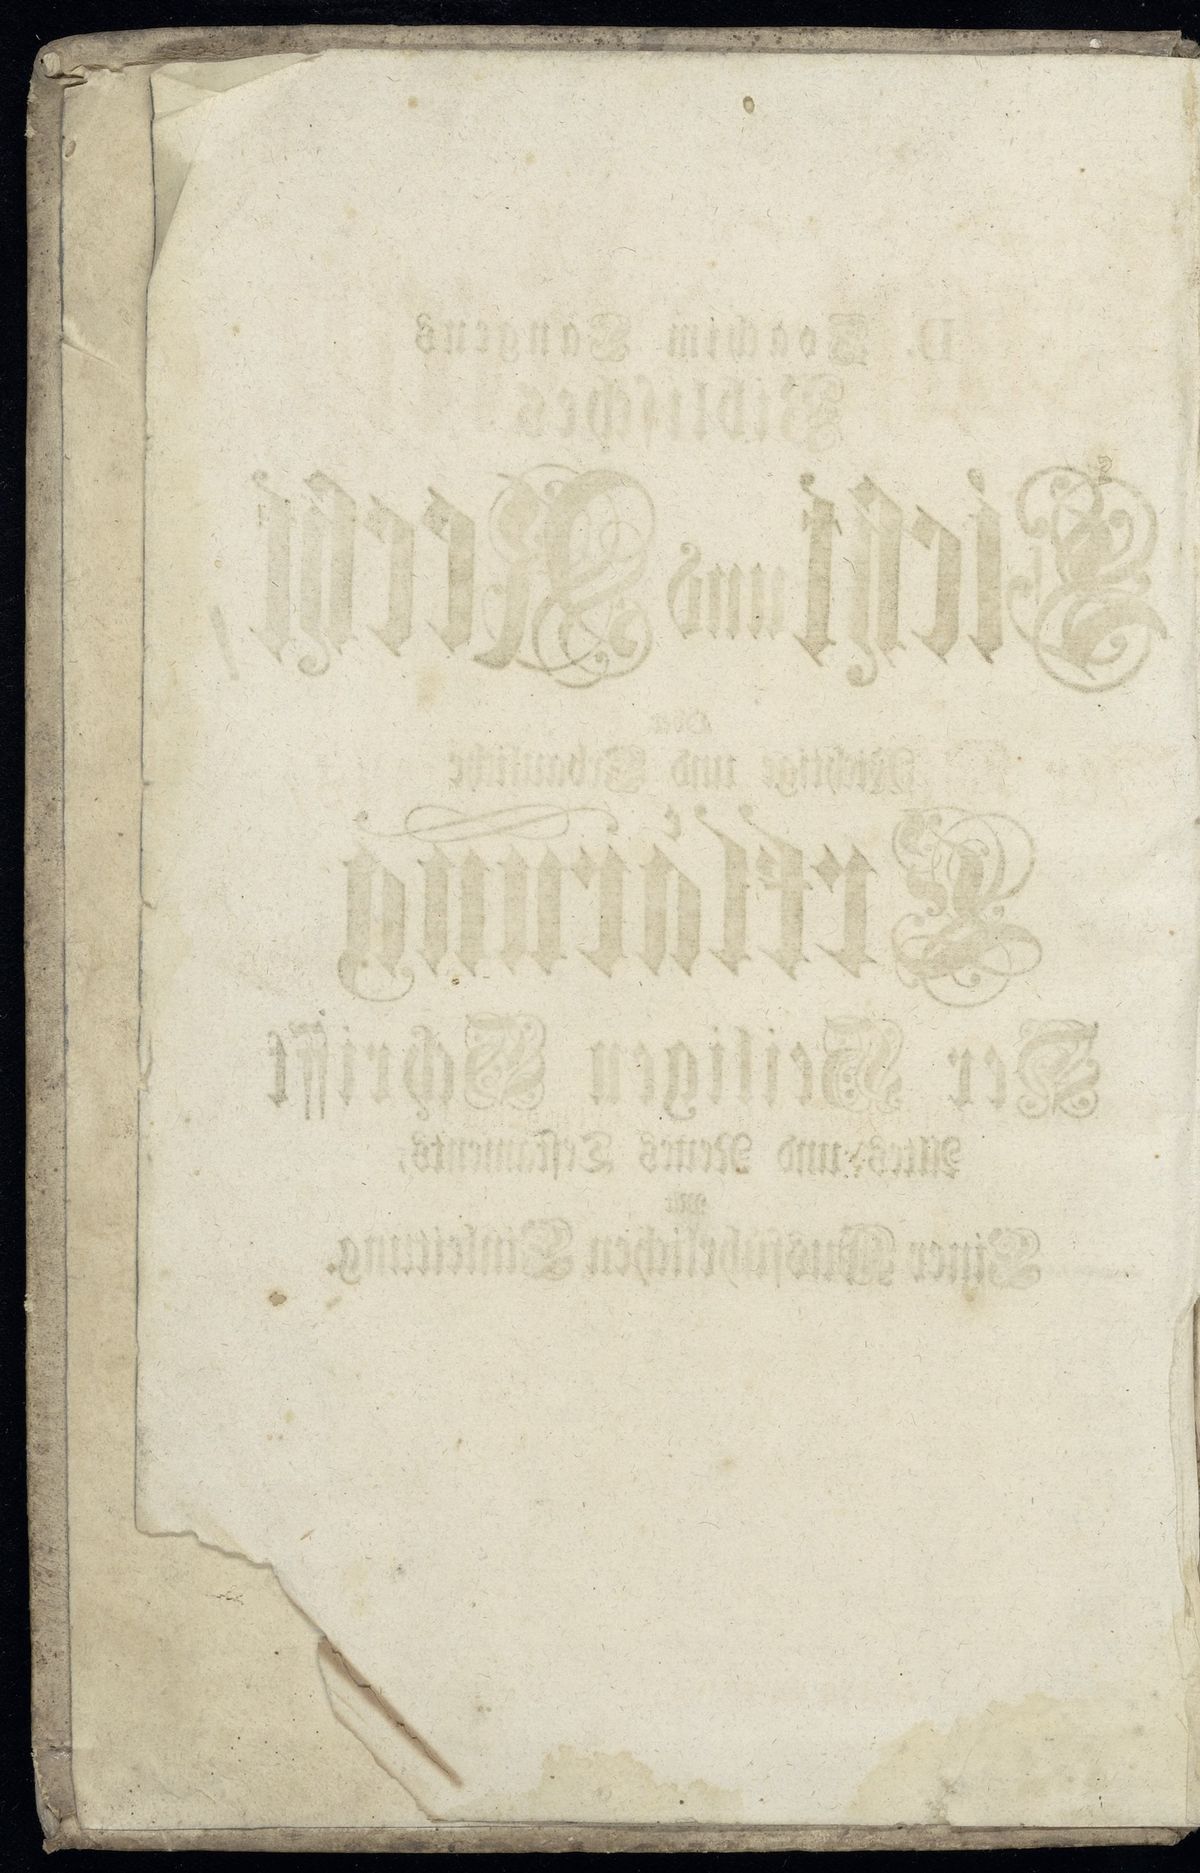 D. Joachim Langens
Biblisches
Licht und Recht,
Oder
Richtige und Erbauliche
Erklärung
Der Heiligen Schrifft
Altes und Neues Testaments,
Mit
Einer Ausführlichen Einleitung.